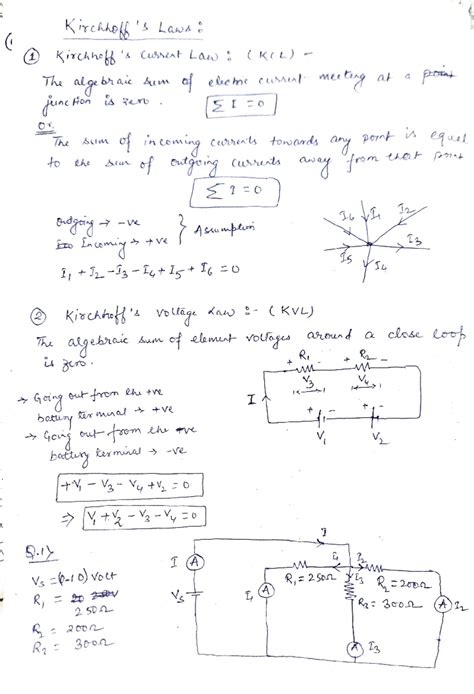 Kirchhoff's Laws:
① Kirchhoff's Current Law: (KCL) -
The algebraic sum of electric current meeting at a
junction is zero. ΣI=0
Or,
The sum of incoming currents towards any point is equal
to the sum of outgoing currents away from that point
ΣI=0
Outgoing → -ve
Incoming → +ve
} Assumption
I₁ + I₂ - I₃ - I₄ + I₅ + I₆ = 0
I₆ I₁ I₂
I₃
I₅ I₄
② Kirchhoff's Voltage Law :- (KVL)
The algebraic sum of element voltages around a close loop
is zero.
+ R₁ - + R₂ -
V₃ V₄
I
+ - + -
V₁ V₂
→ Going out from the +ve
battery terminal → +ve
→ Going out from the -ve
battery terminal → -ve
+V₁ - V₃ - V₄ + V₂ = 0
⇒ V₁ + V₂ - V₃ - V₄ = 0
Q.1)
Vs = (0-10) Volt
R₁ =
250Ω
R₂ = 200Ω
R₃ = 300Ω
I
I A
Vs
I₁ A
R₁ = 250Ω
I₁ I₂
I₃
R₂ = 200Ω
R₃ = 300Ω
A I₂
A I₃